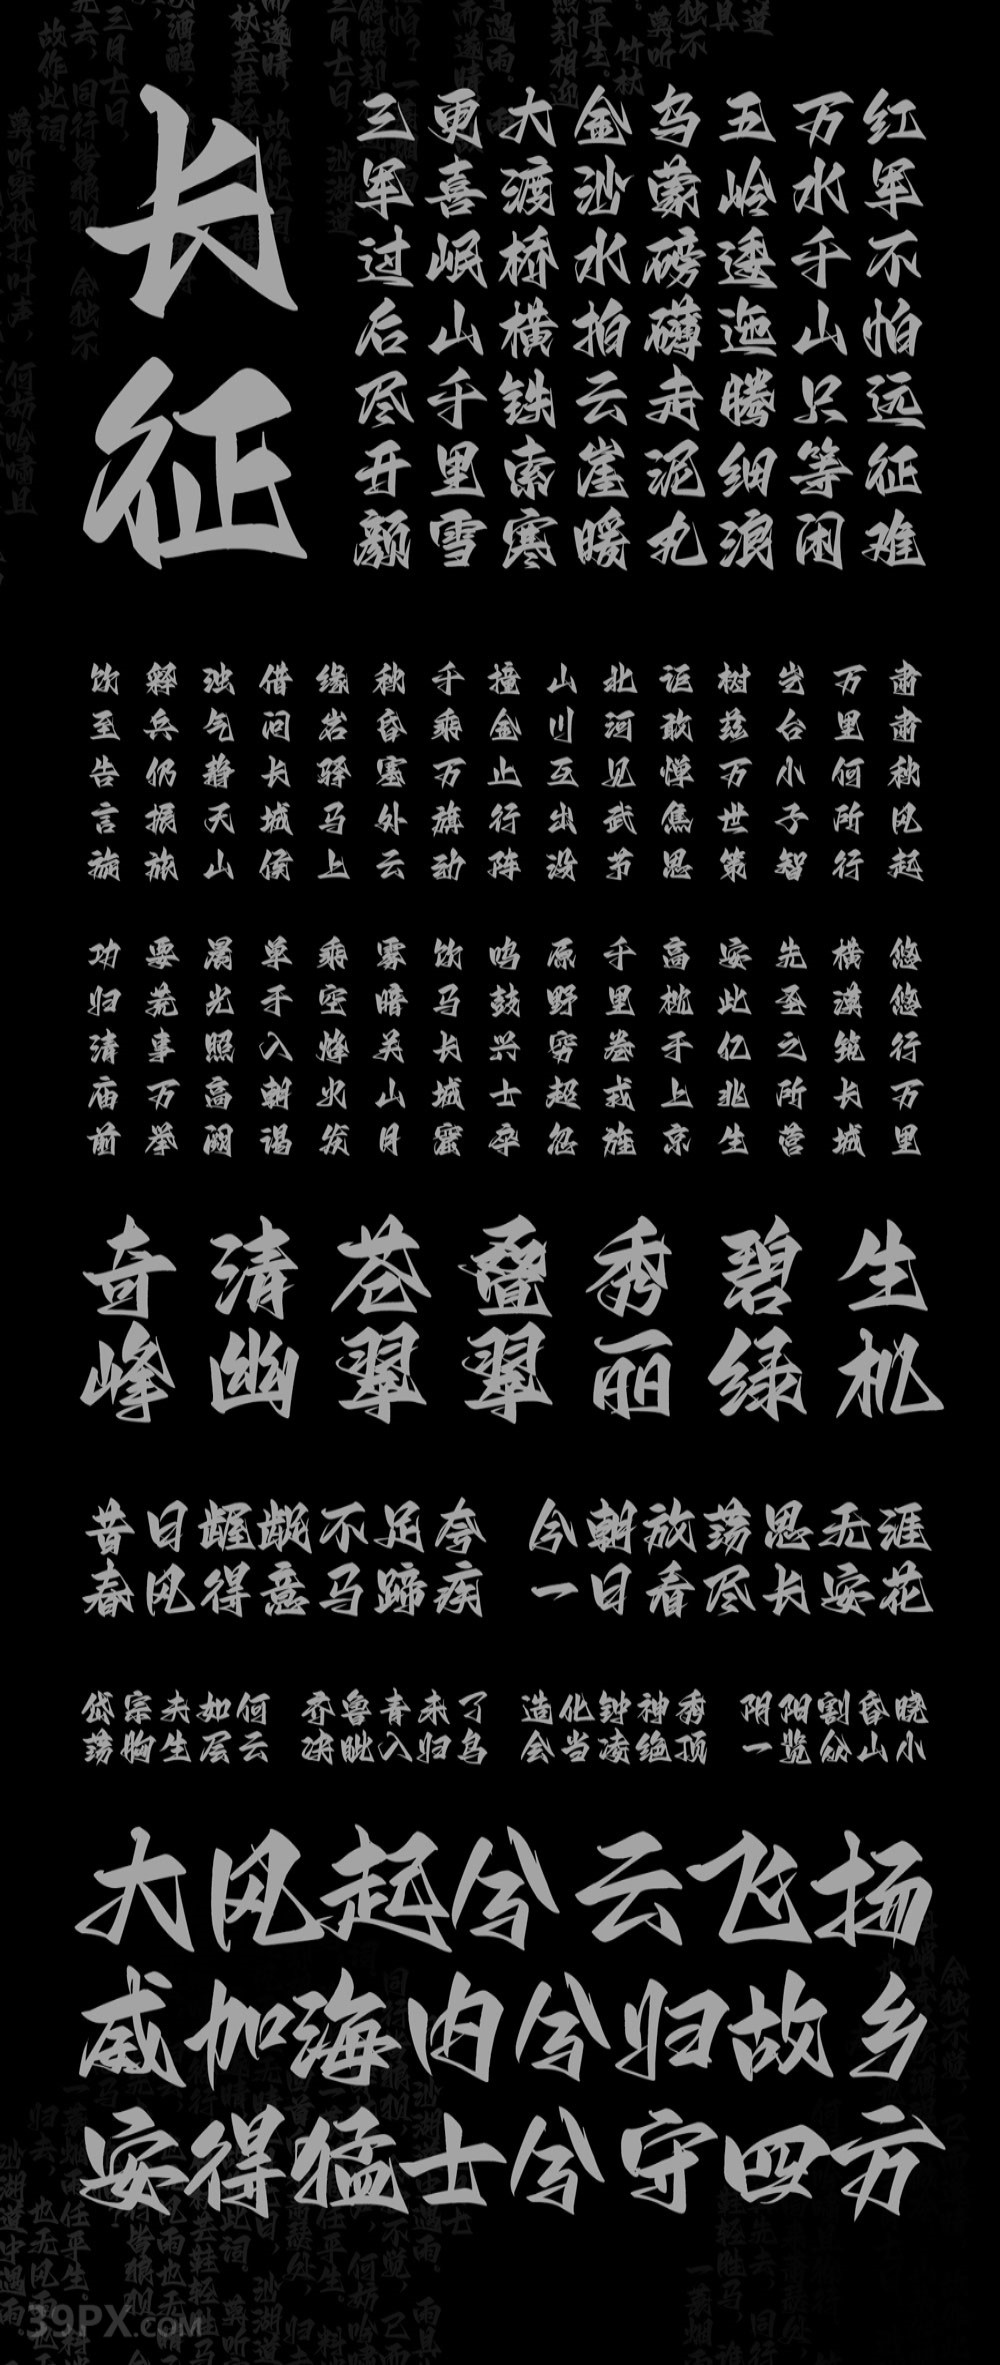 长征
红军不怕远征难
万水千山只等闲
五岭逶迤腾细浪
乌蒙磅礴走泥丸
金沙水拍云崖暖
大渡桥横铁索寒
更喜岷山千里雪
三军过后尽开颜
肃肃秋风起
万里何所行
岂台小子智
树兹万世策
讵敢惮焦思
北河见武节
山川互出没
撞金止行阵
千乘万旗动
秋昏塞外云
缘岩驿马上
借问长城侯
浊气静天山
释兵仍振旅
饮至告言旋
悠悠行万里
横漠筑长城
先圣之所营
安此亿兆生
高枕于上京
千里卷戎旌
原野穷超忽
鸣鼓兴士卒
饮马长城窟
雾暗关山月
乘空烽火发
单于入朝谒
晨光照高阙
要荒事万举
功归清庙前
生机
碧绿
秀丽
叠翠
苍翠
清幽
奇峰
昔日龌龊不足夸 今朝放荡思无涯
春风得意马蹄疾 一日看尽长安花
岱宗夫如何 齐鲁青未了 造化钟神秀 阴阳割昏晓
荡胸生层云 决眦入归鸟 会当凌绝顶 一览众山小
大风起兮云飞扬
威加海内兮归故乡
安得猛士兮守四方
39PX.COM